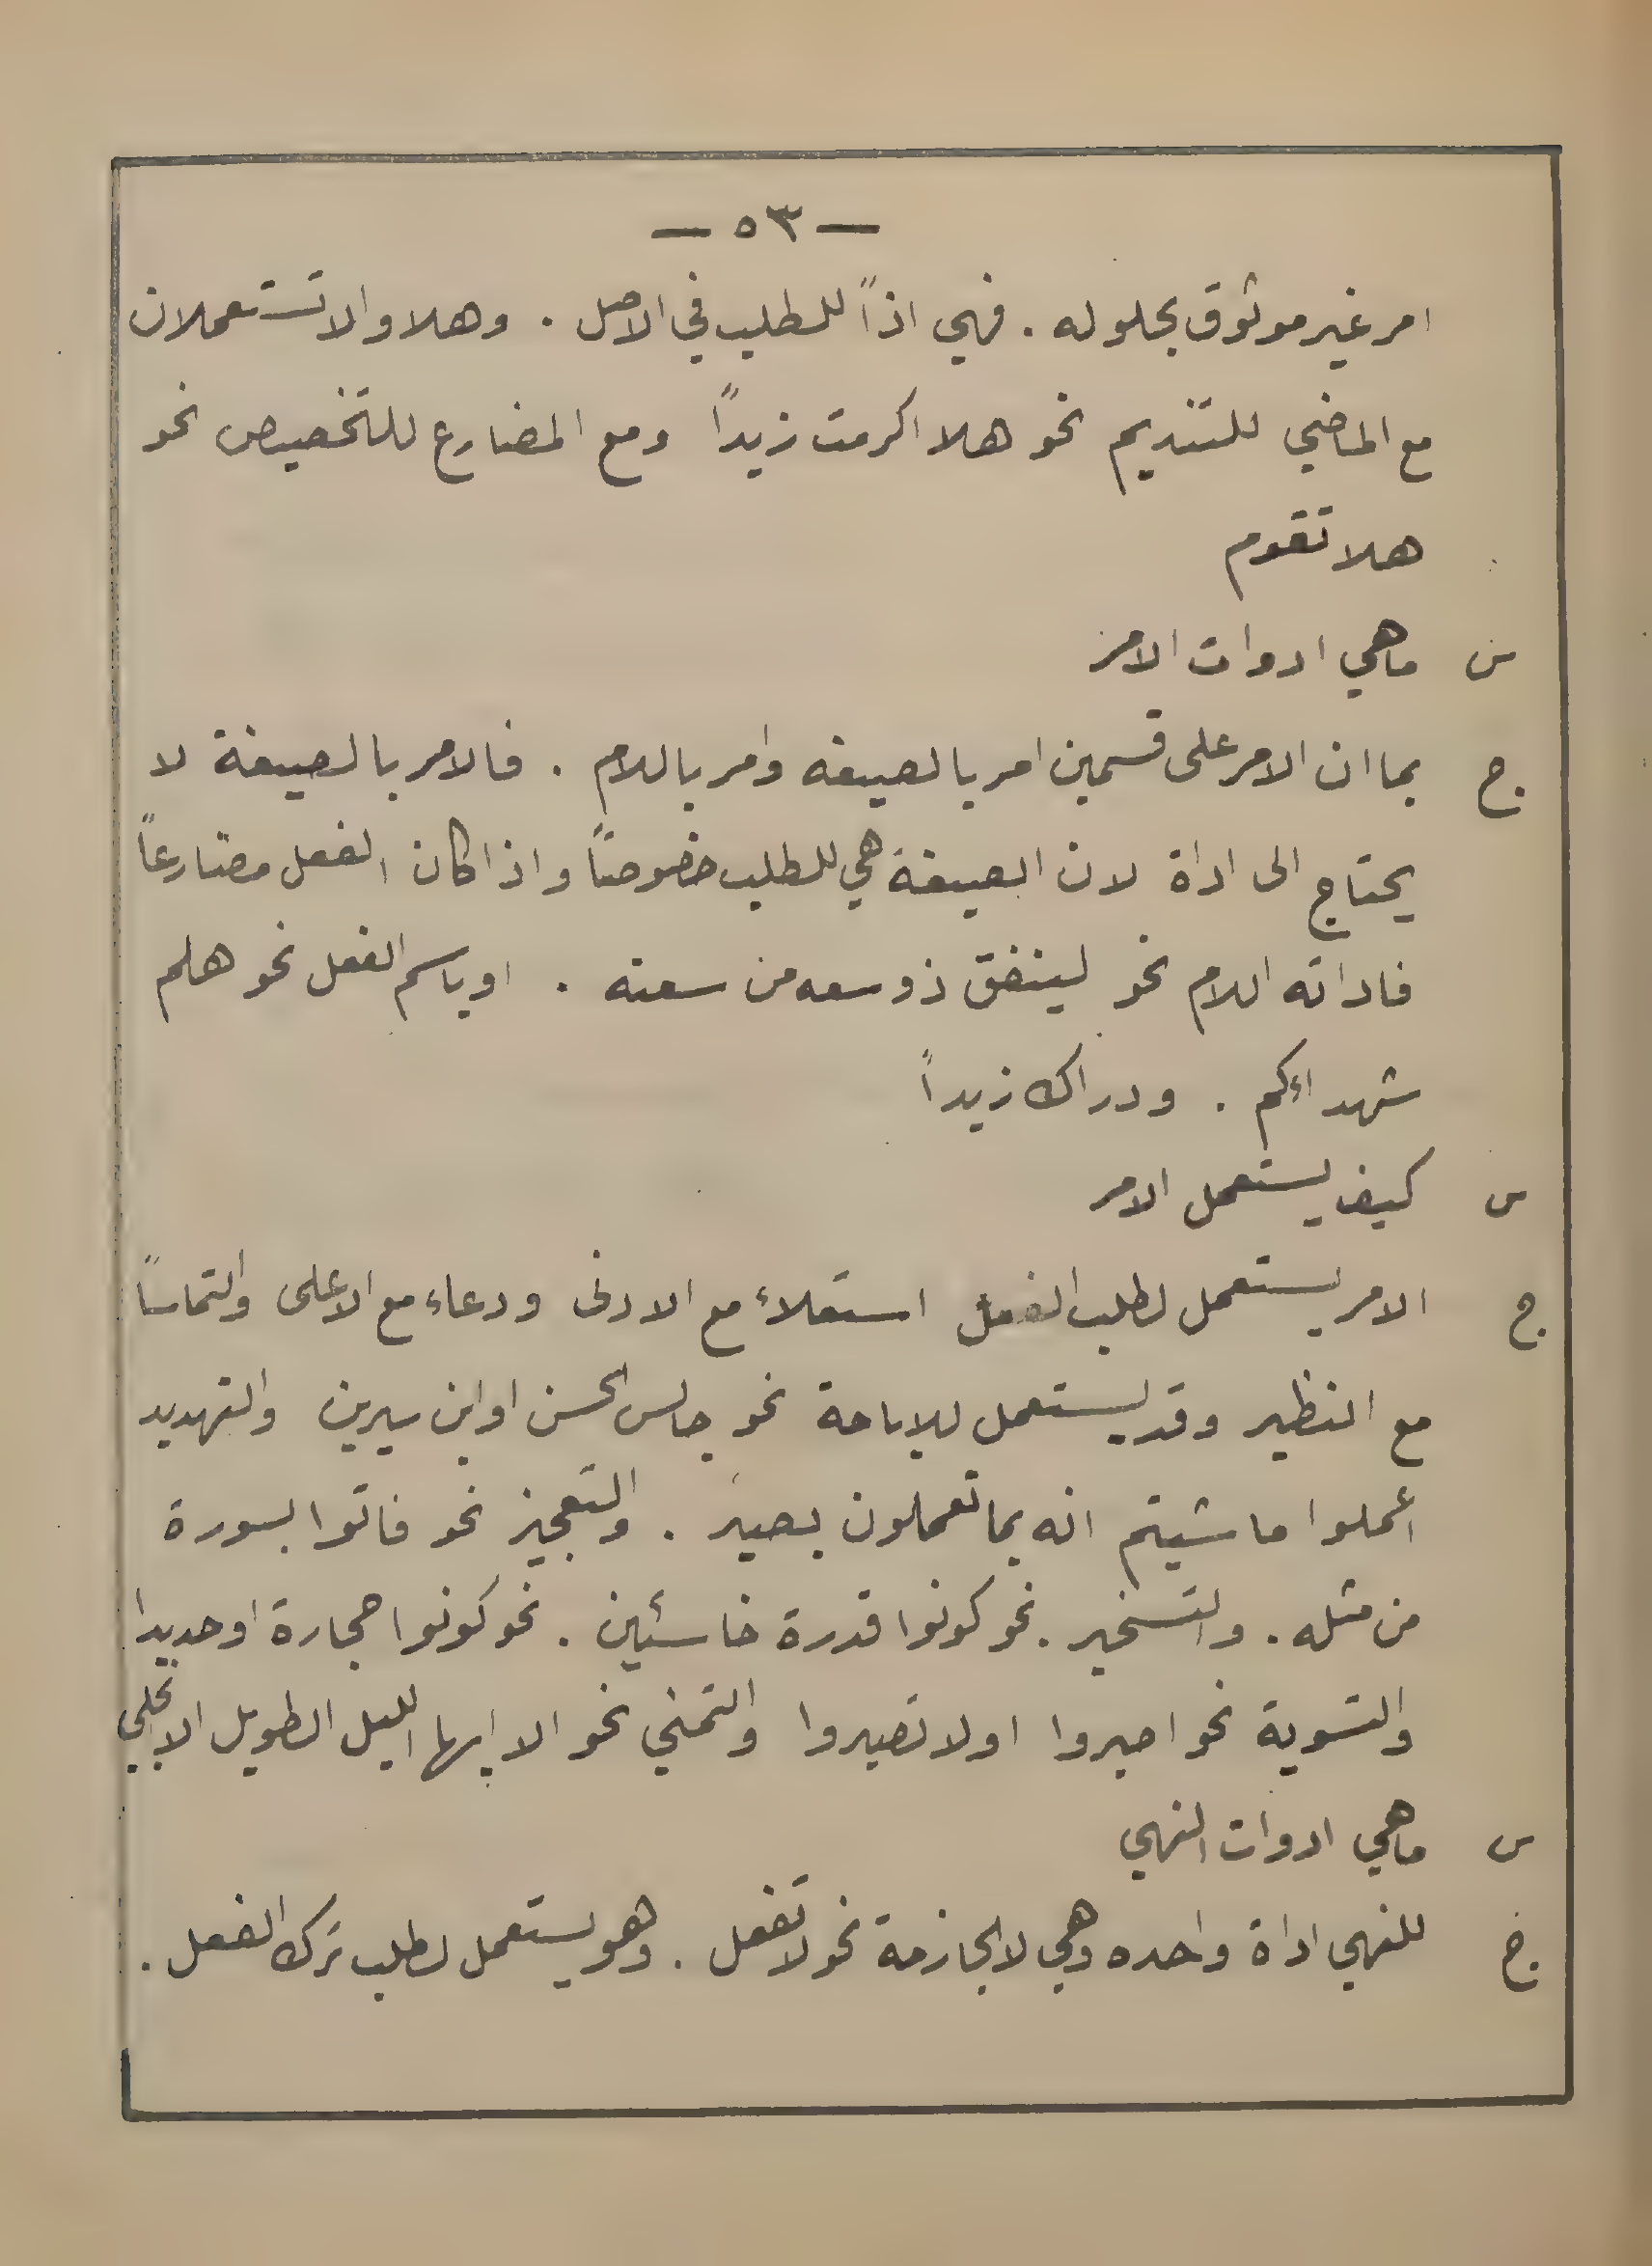 — ٥٣ —
امر غير موثوق بحلوله . فهي اذاً للطلب في الاصل . وهلا والا تستعملان
مع الماضي للتنديم نحو هلا اكرمت زيداً ومع المضارع للتخصيص نحو
هلا تقوم
س ما هي ادوات الامر
ج بما ان الامر على قسمين امر بالصيغه وامر باللام . فالامر بالصيغة لا
يحتاج الى اداة لان الصيغة هي للطلب خصوصاً واذا كان الفعل مضارعاً
فاداته اللام نحو لينفق ذو سعه من سعته . او باسم الفعل نحو هلم
شهداءكم . ودراك زيداً
س كيف يستعمل الامر
ج الامر يستعمل لطلب الفعل استعلاء مع الادنى ودعاء مع الاعلى والتماساً
مع النظير وقد يستعمل للاباحة نحو جالس الحسن او ابن سيرين والتهديد
اعملوا ما شيتم انه بما تعملون بصير . والتعجيز نحو فاتوا بسورة
من مثله . والتسخير . نحو كونوا قدرة خاسئين . نحو كونوا حجارة او حديدا
والتسوية نحو اصبروا اولا تصبروا والتمني نحو الا ايها الليل الطويل الا انجلي
س ما هي ادوات النهي
ج للنهي اداة واحده وهي لا الجازمة نحو لا تفعل . وهو يستعمل لطلب ترك الفعل .